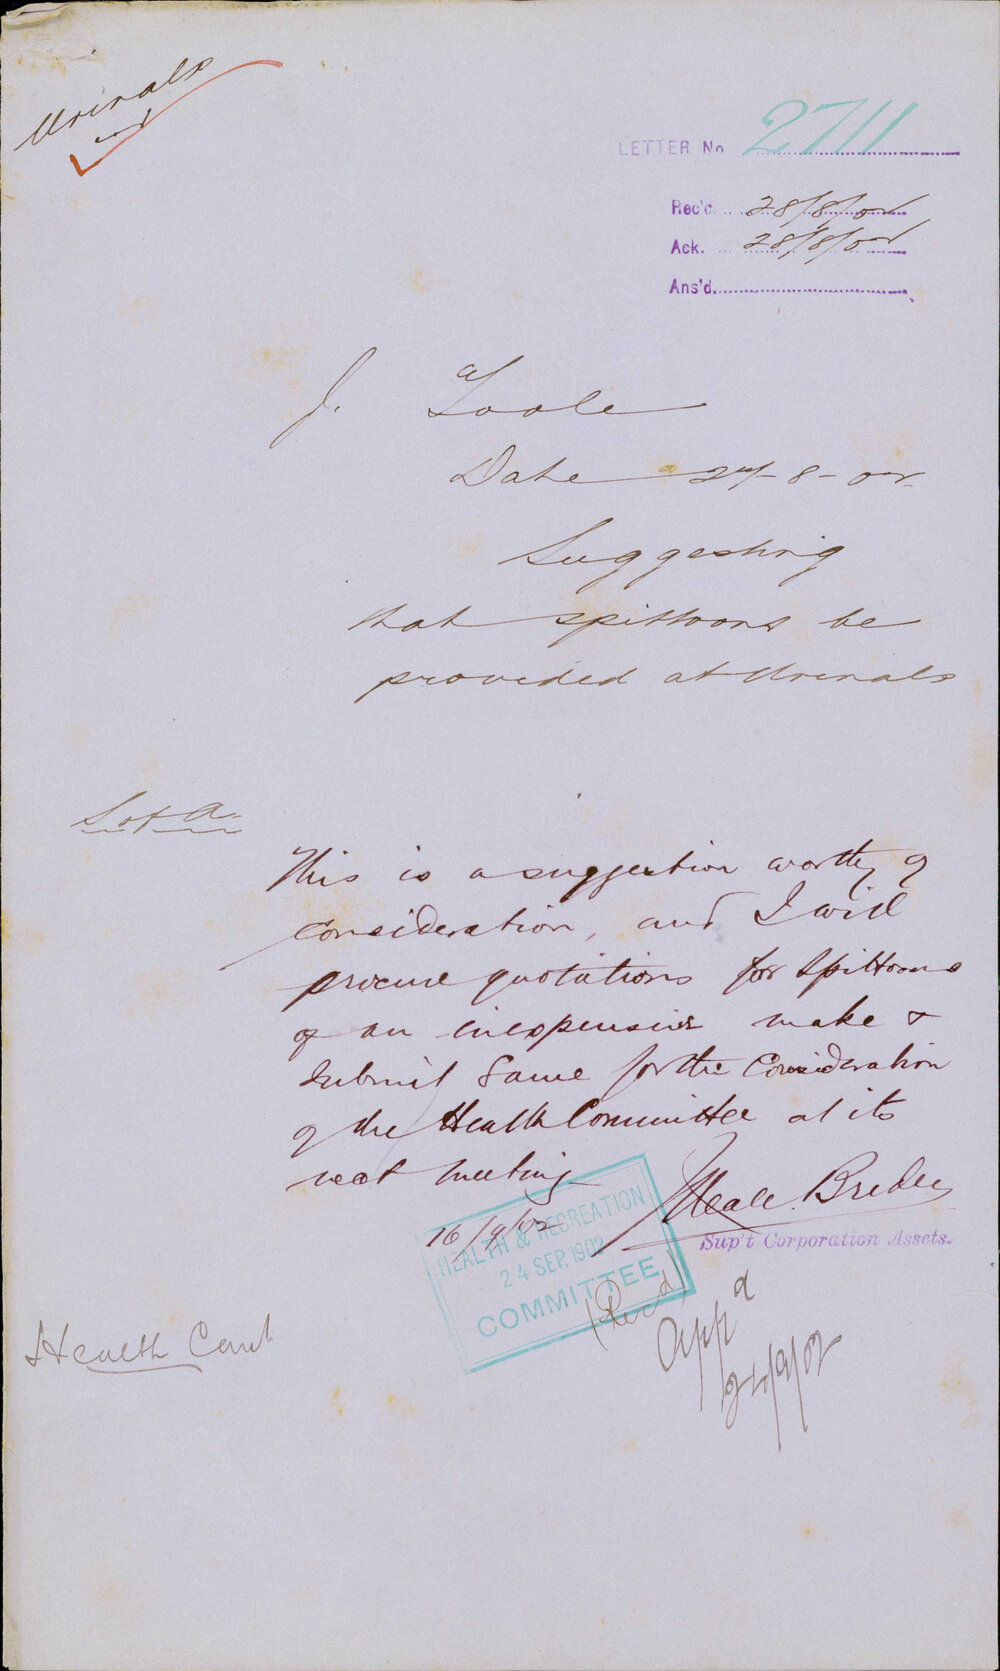 Urinals
LETTER No 2711
Rec'd 28/8/02
Ack. 28/8/02
Ans'd.
J. Toole
Date 27-8-02
Suggesting
that spittoons be
provided at Urinals
S of A.
This is a suggestion worthy of
consideration, and I will
procure quotations for Spittoons
of an inexpensive make &
submit same for the Consideration
of the Health Committee at its
next meeting
Neale Breden
16/9/02
Sup't Corporation Assets.
HEALTH & RECREATION
24 SEP. 1902
COMMITTEE
(Rec'd)
Appd
24/9/02
Health Com